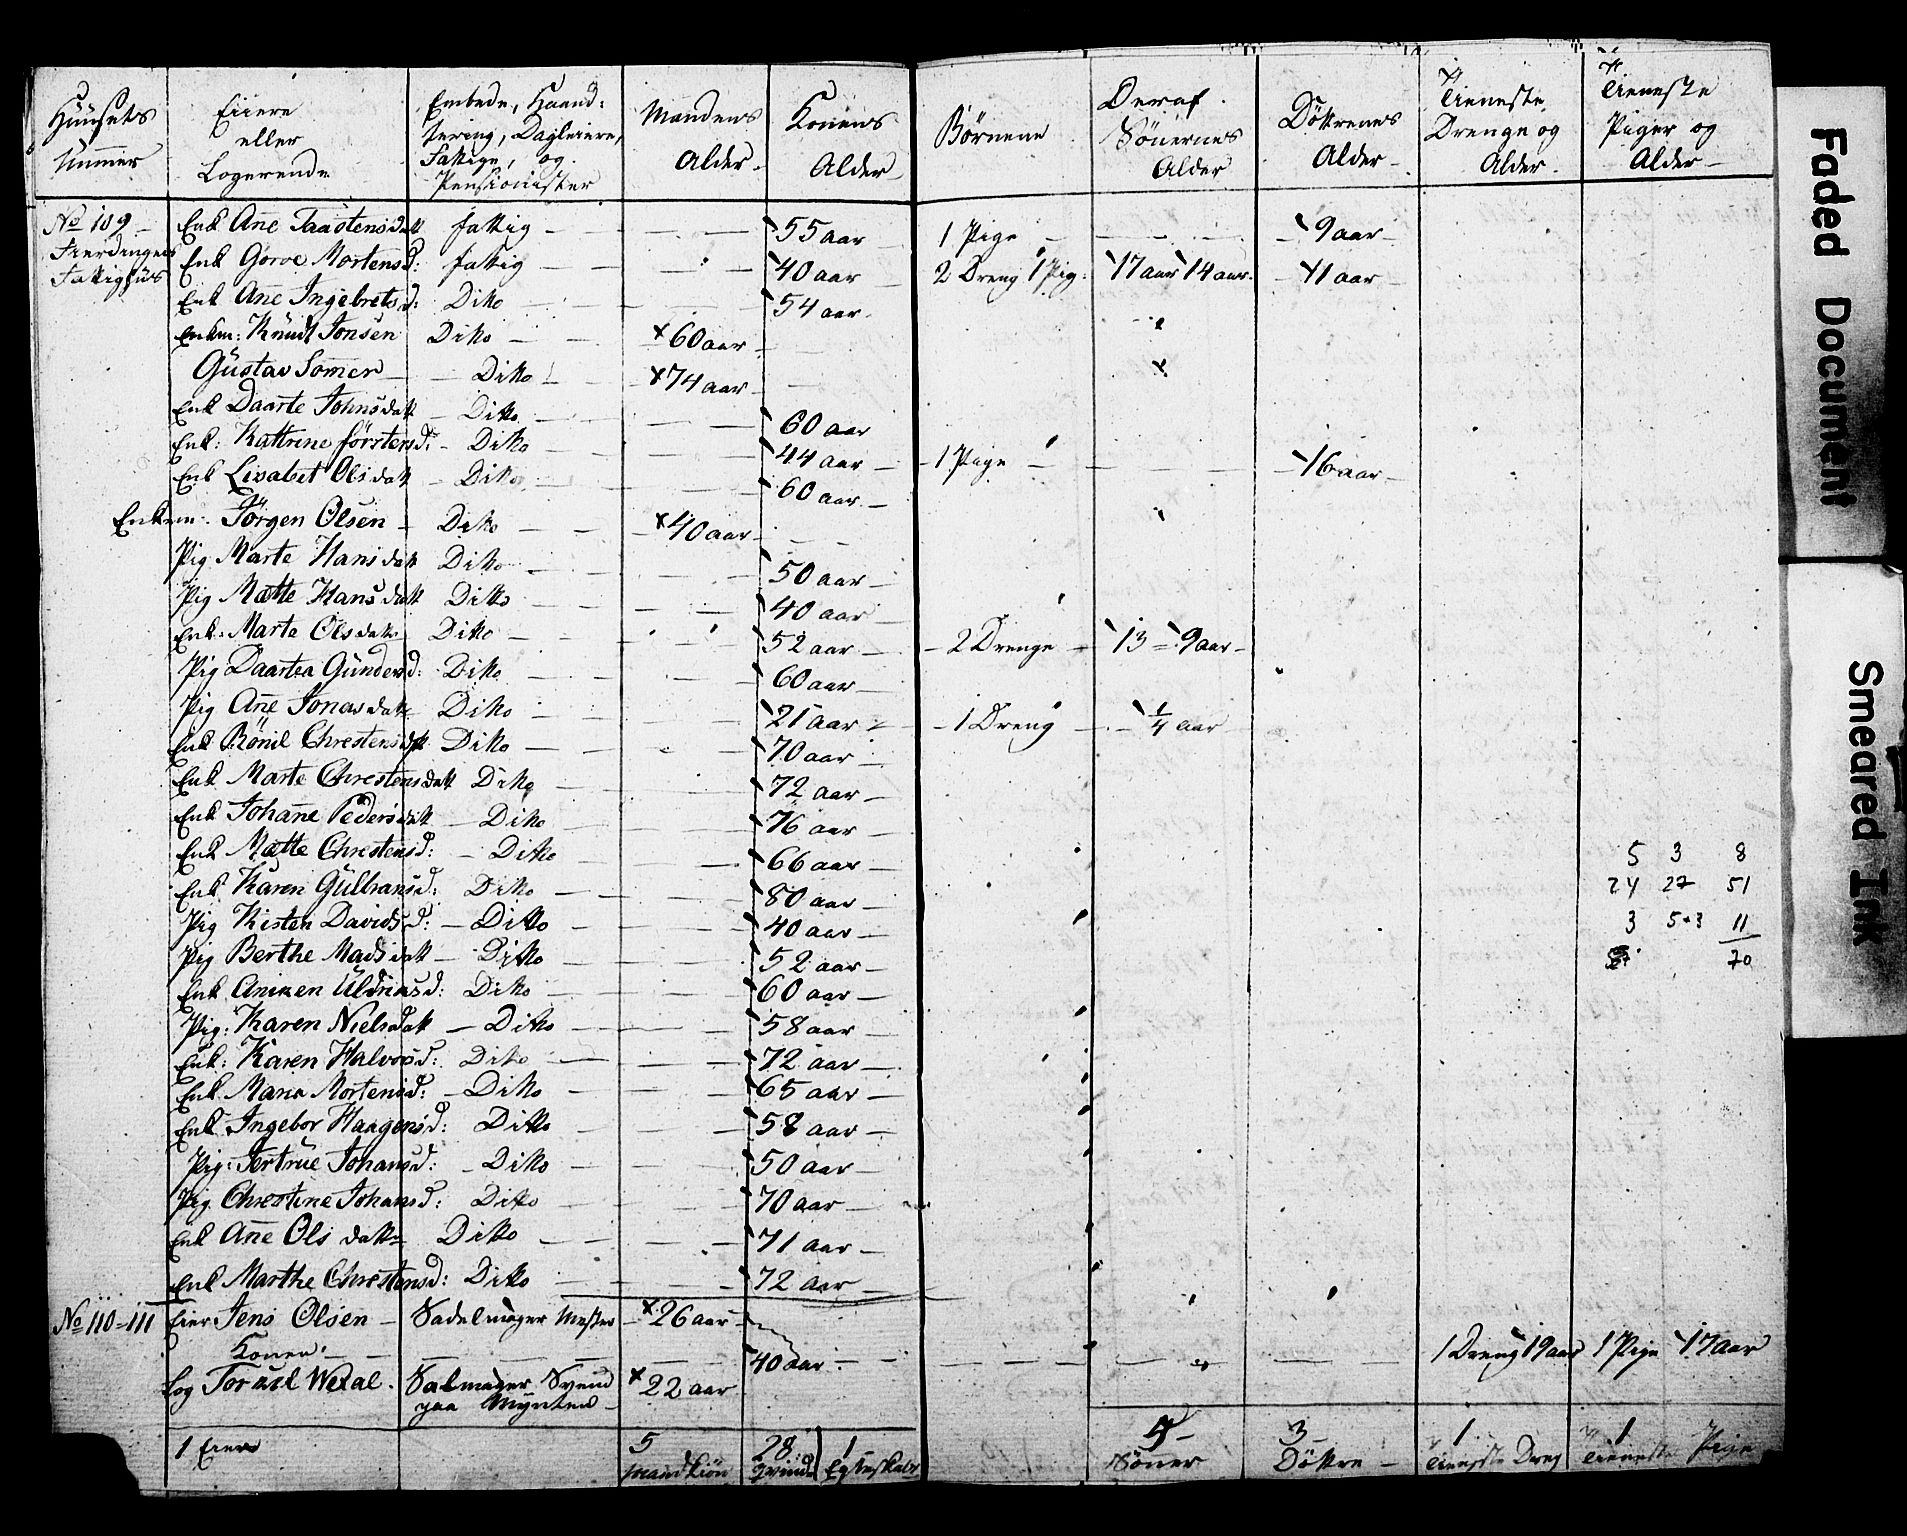 Huusets Nummer | Eiere eller Logerende | Embede, Haandtering, Dagleiere, Fattige, og Pensionister | Mandens Alder | Konens Alder | Børnene | Deraf Sönernes Alder | Döttrenes Alder | Tieneste Drenge og Alder | Tieneste Piger og Alder
No 109 Enk Ane Taastensdatt fattig 55 aar 1 Pige 9 aar
Fierdingens Enk Gorve Mortensd: fattig 40 aar 2 Dreng 1 Pig: 17 aar 14 aar 11 aar
Fattighus
Enk Ane Ingebretsd: Ditto 54 aar
Enkm: Knudt Jonsen Ditto 60 aar
Gustav Somer Ditto 74 aar
Enk Daarte Johnsdatt Ditto 60 aar
Enk: Kattrine förstersd: Ditto 44 aar 1 Pige 16 aar
Enk Lisabet Olsdatt Ditto 60 aar
Enkem: Jörgen Olsen Ditto 40 aar
Pig Marte Hansdatt Ditto 50 aar
Pig Mætte Hansdatt Ditto 40 aar
Enk: Marte Olsdatt Ditto 52 aar 2 Drenge 13 = 9 aar
Pig Daartea Gundersd: Ditto 60 aar
Pig Ane Jonasdatt Ditto 21 aar 1 Dreng 1/4 aar
Enk Rönil Chrestensdatt Ditto 70 aar
Enk Marte Chrestensdatt Ditto 72 aar
Enk Johane Pedersdatt Ditto 76 aar
Enk Mætte Chrestensd: Ditto 66 aar 5 3 8
Enk Karen Gulbransd: Ditto 80 aar 24 27 51
Pig Kisten Davidsd: Ditto 40 aar 3 5+3 11
Pig Berthe Madsdatt Ditto 52 aar 70
Enk Aniken Uldriksd: Ditto 60 aar
Pig: Karen Nielsdatt Ditto 58 aar
Enk: Karen Halvorsd: Ditto 72 aar
Enk Maria Mortensd: Ditto 65 aar
Enk Ingebor Haagensd: Ditto 58 aar
Pig: Jertrue Johansd: Ditto 50 aar
Pig Chrestine Johansd: Ditto 70 aar
Enk Ane Olsdatt Ditto 71 aar
Enk Marthe Chrestensd: Ditto 72 aar
No 110=111 Eier Jens Olsen Sadelmager Mester 26 aar
Konen 40 aar 1 Dreng 19 aar 1 Pige 17 aar
Log Salmager Svend 22 aar
paa Mynten
1 Eier 5 Mandkiön 28 Qvind 1 Egteskab 5 Sönner 3 Döttre 1 Tieneste Dreng 1 Tieneste Pige
Faded Document
Smeared Ink